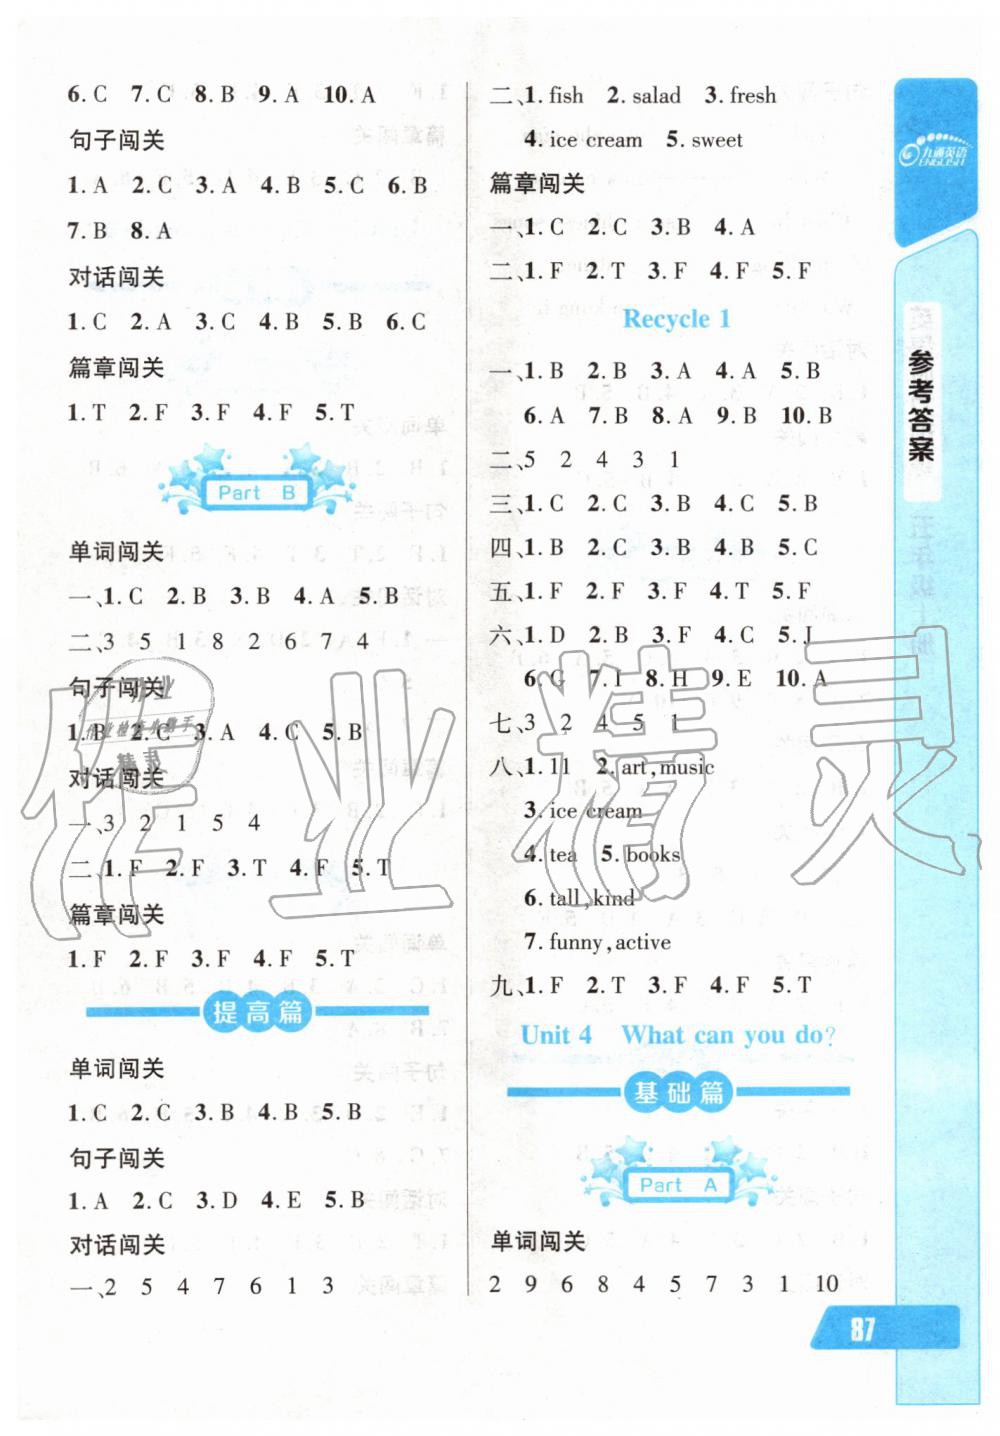 6.C 7.C 8.B 9.A 10.A
句子闯关
1.A 2.C 3.A 4.B 5.C 6.B
7.B 8.A
对话闯关
1.C 2.A 3.C 4.B 5.B 6.C
篇章闯关
1.T 2.F 3.F 4.F 5.T
Part B
单词闯关
一、1.C 2.B 3.B 4.A 5.B
二、3 5 1 8 2 6 7 4
句子闯关
1.B 2.C 3.A 4.C 5.B
对话闯关
一、3 2 1 5 4
二、1.F 2.F 3.T 4.F 5.T
篇章闯关
1.F 2.F 3.F 4.F 5.T
提高篇
单词闯关
1.C 2.C 3.B 4.B 5.B
句子闯关
1.A 2.C 3.D 4.E 5.B
对话闯关
一、2 5 4 7 6 1 3
二、1.fish 2.salad 3.fresh
4.ice cream 5.sweet
篇章闯关
一、1.C 2.C 3.B 4.A
二、1.F 2.T 3.F 4.F 5.F
Recycle 1
一、1.B 2.B 3.A 4.A 5.B
6.A 7.B 8.A 9.B 10.B
二、5 2 4 3 1
三、1.C 2.C 3.B 4.C 5.B
四、1.B 2.C 3.B 4.B 5.C
五、1.F 2.F 3.F 4.T 5.F
六、1.D 2.B 3.F 4.C 5.J
6.G 7.I 8.H 9.E 10.A
七、3 2 4 5 1
八、1.11 2.art,music
3.ice cream
4.tea 5.books
6.tall,kind
7.funny,active
九、1.F 2.T 3.F 4.F 5.T
Unit 4 What can you do?
基础篇
Part A
单词闯关
2 9 6 8 4 5 7 3 1 10
九通英语
ENGLISH
参考答案
87
作业
作业检查小助手
精灵
作业精灵